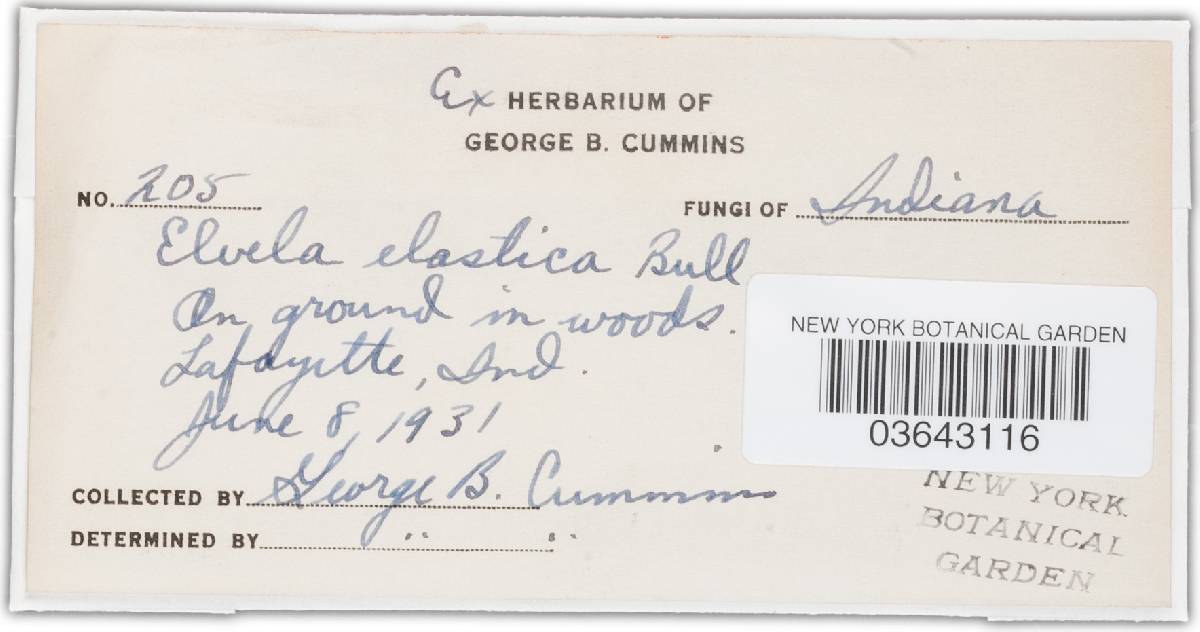 Ex HERBARIUM OF
GEORGE B. CUMMINS
NO. 205
FUNGI OF Indiana
Elvela elastica Bull
On ground in woods.
Lafayette, Ind.
June 8, 1931
NEW YORK BOTANICAL GARDEN
03643116
COLLECTED BY George B. Cummins
DETERMINED BY " "
NEW YORK
BOTANICAL
GARDEN